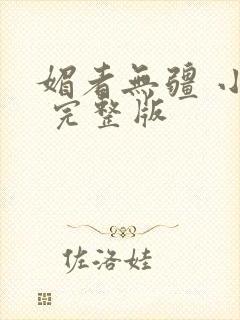 媚者無疆 小
完整版
佐洛娃